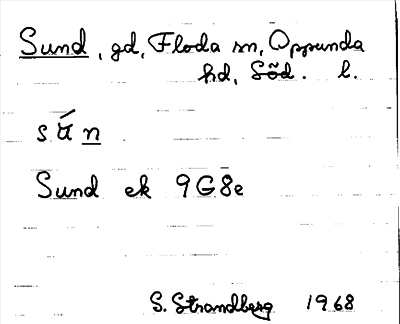 Sund, gd, Floda sn, Oppunda
hd, Söd. l.
sú̶n
Sund ek 9G8e
S. Strandberg 1968